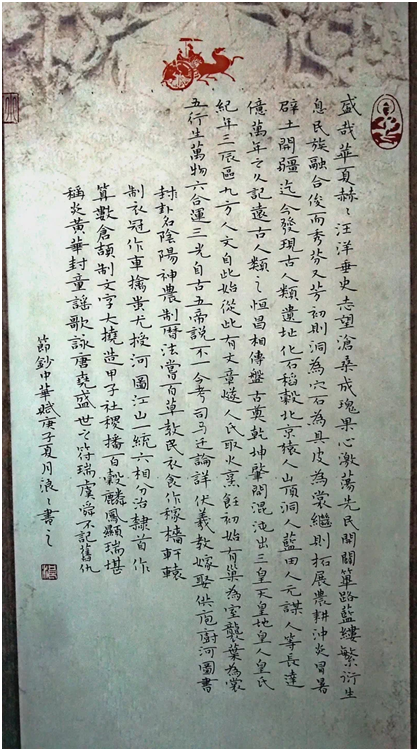 盛哉華夏赫々汪洋垂史志望滄桑成瑰果心激蕩先民開闢篳路藍縷繁衍生
息民族融合後而秀芬又芳初則洞為穴石為具皮為裳繼則拓展農耕沖炎冒暑
辟土開疆迄今發現古人類遺址化石稻穀北京猿人山頂洞人藍田人元謀人等長達
億萬年之久記遠古人類之恒昌相傳盤古奠乾坤肇開混沌出三皇天皇地皇人皇氏
紀年三辰區九方人文自此始從此有文章燧人氏取火烹飪初始有巢為室襲葉為裳
五行生萬物六合運三光自古五帝説不一今考司马迁論詳伏羲教嫁娶供庖廚河圖書
卦名陰陽神農制曆法嘗百草教民衣食作稼穡軒轅
制衣冠作車擒蚩尤授河圖江山一統六相分治隸首作
算數倉頡制文字大撓造甲子社稷播百穀麟鳳顯瑞堪
稱炎黃華封童謠歌詠唐堯盛世之符瑞虞舜不記舊仇
節鈔中華賦庚子夏月浪々書之